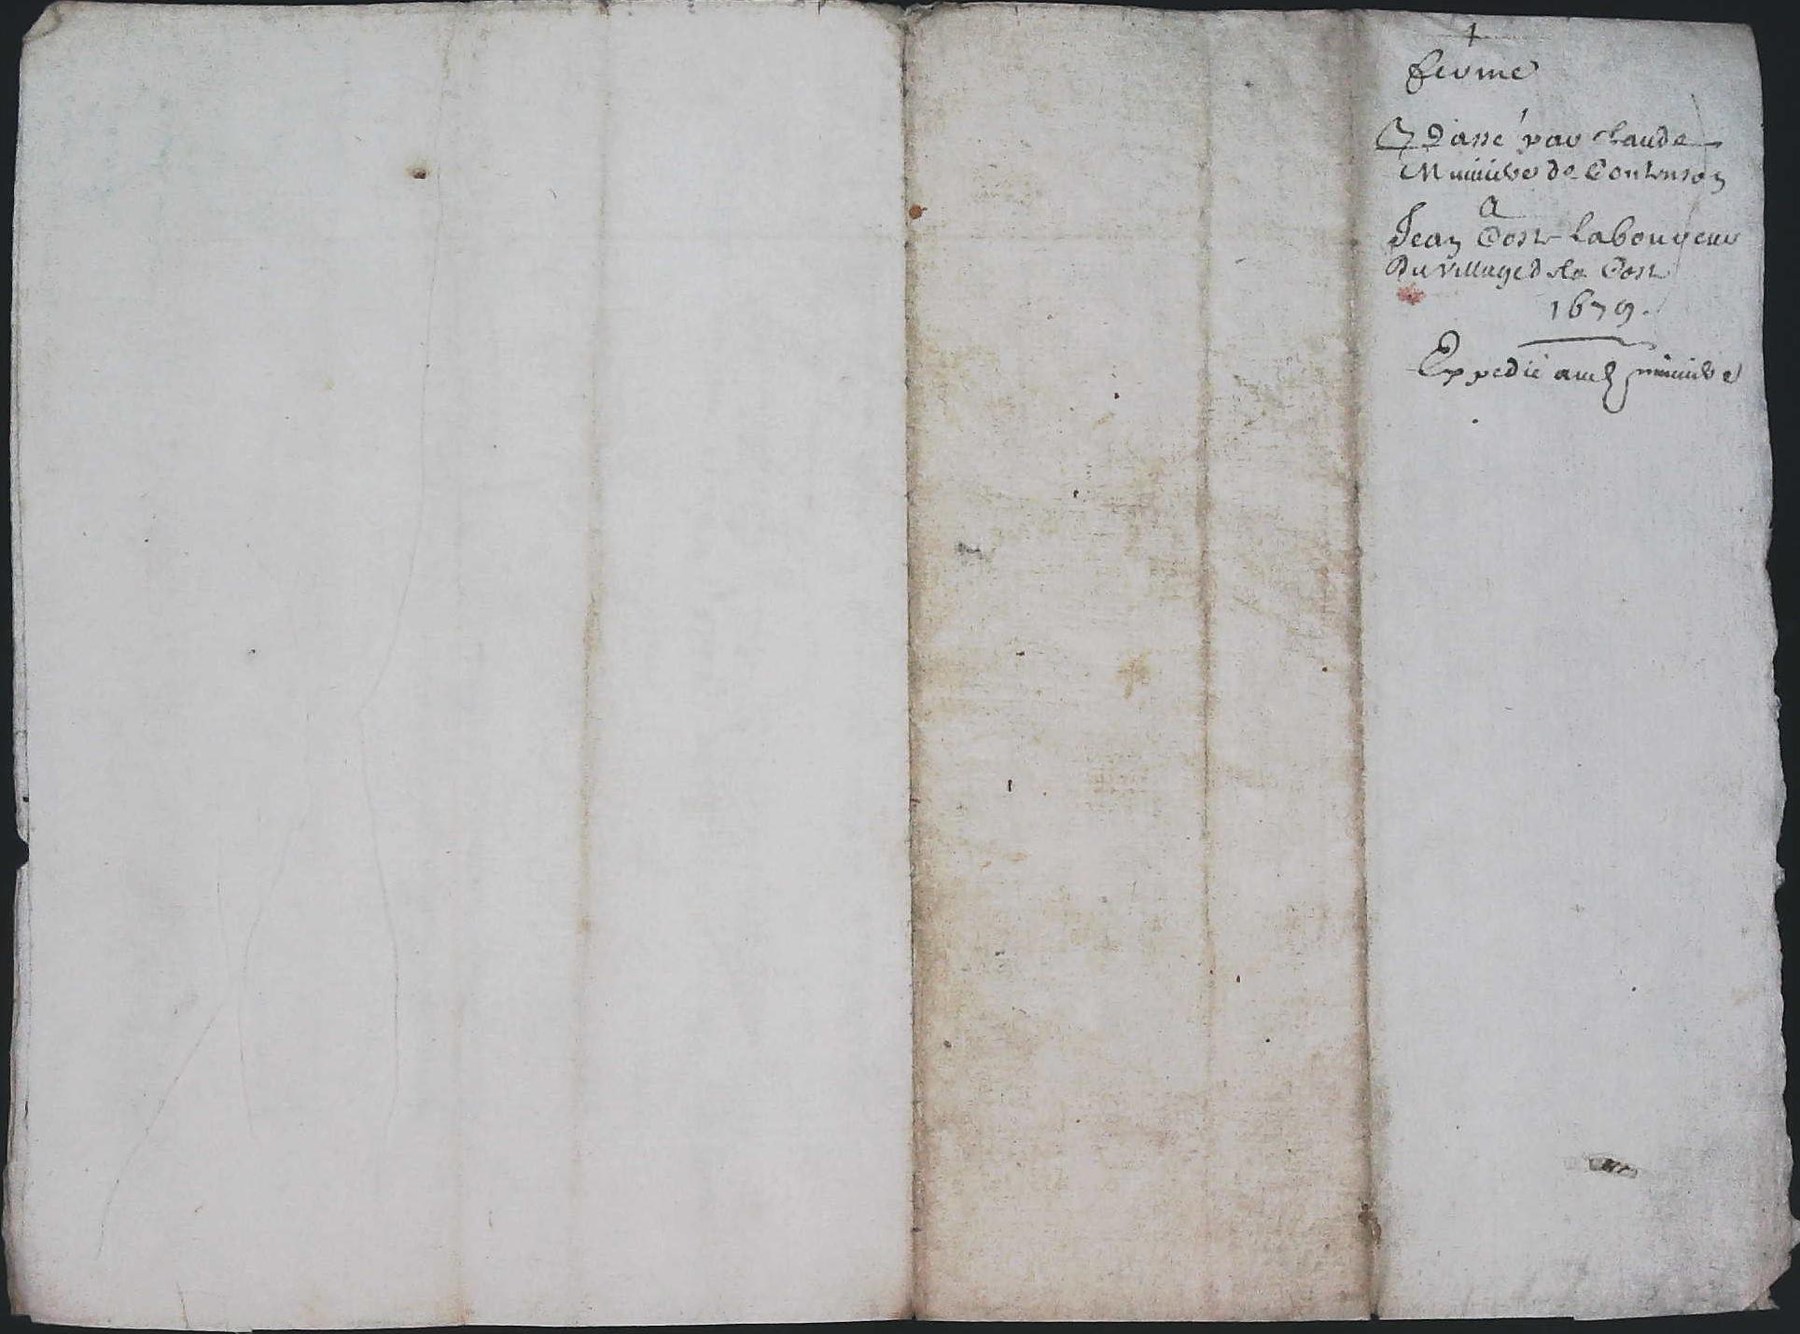 ferme
Passé par Claude
Muniere de Contenson
A
Jean Coste Laboureur
Du village de la Coste
1679.
Expedié aud muniere